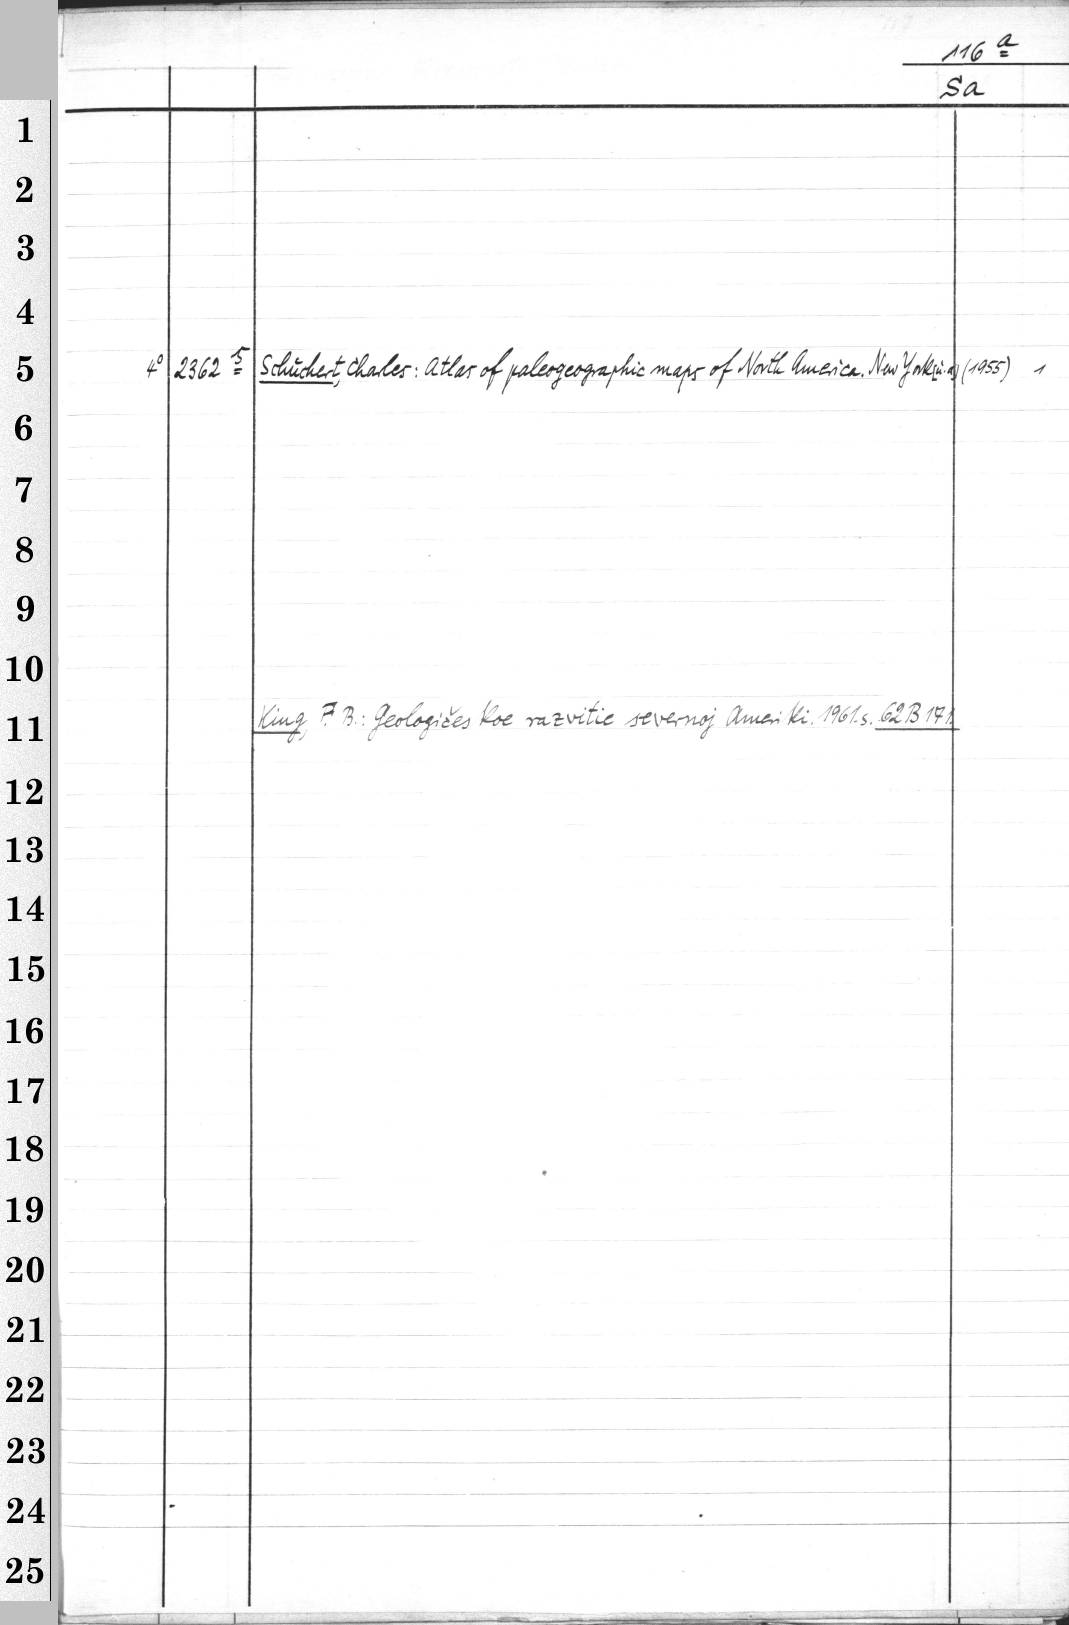 116 a
Sa
1
2
3
4
4° 2362 5 Schuchert, Charles: Atlas of paleogeographic maps of North America. New York [u.a.] (1955) 1
5
6
7
8
9
10
King, F. B.: Geologičeskoe razvitie severnoj Ameriki. 1961. s. 62 B 171.
11
12
13
14
15
16
17
18
19
20
21
22
23
24
25